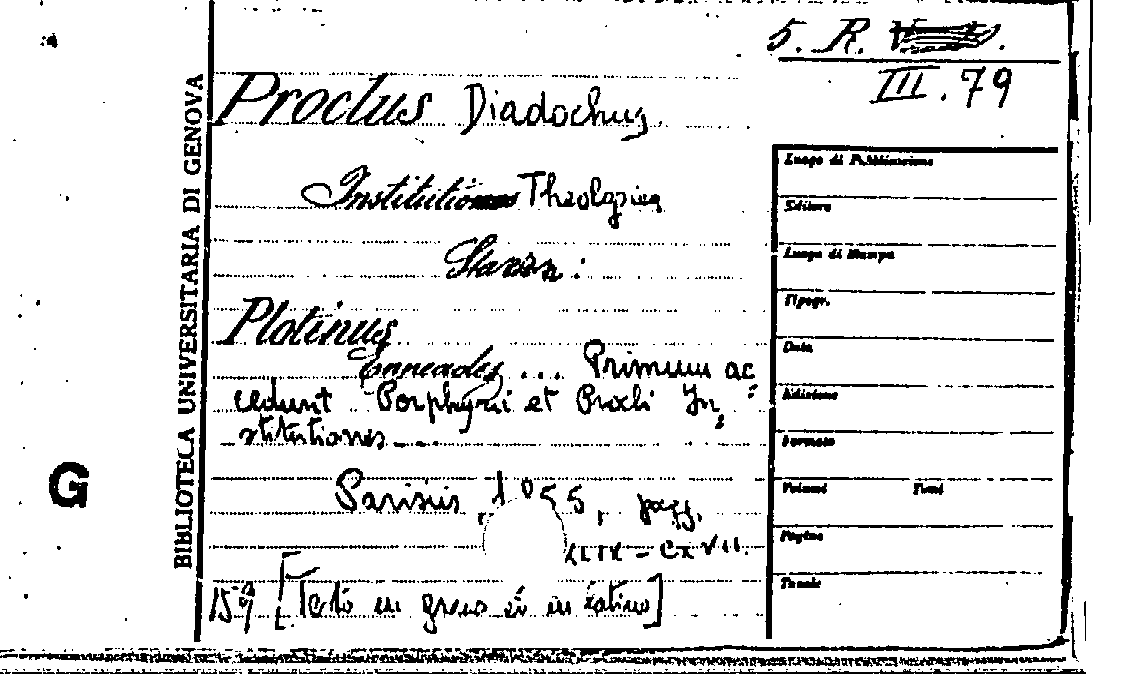 5. R.
III. 79
Proclus Diadochus
Institutiones Theologica
Plotinus
Enneades ... Primum ac
cedunt Porphyrii et Procli In
stitutiones
Parisiis, 1855, pagg.
- CXVII.
159 [Testo in greco ed in latino]
BIBLIOTECA UNIVERSITARIA DI GENOVA
G
Luogo di Pubblicazione
Editore
Luogo di Stampa
Tipogr.
Data
Edizione
Formato
Volumi Tomi
Pagine
Tavole